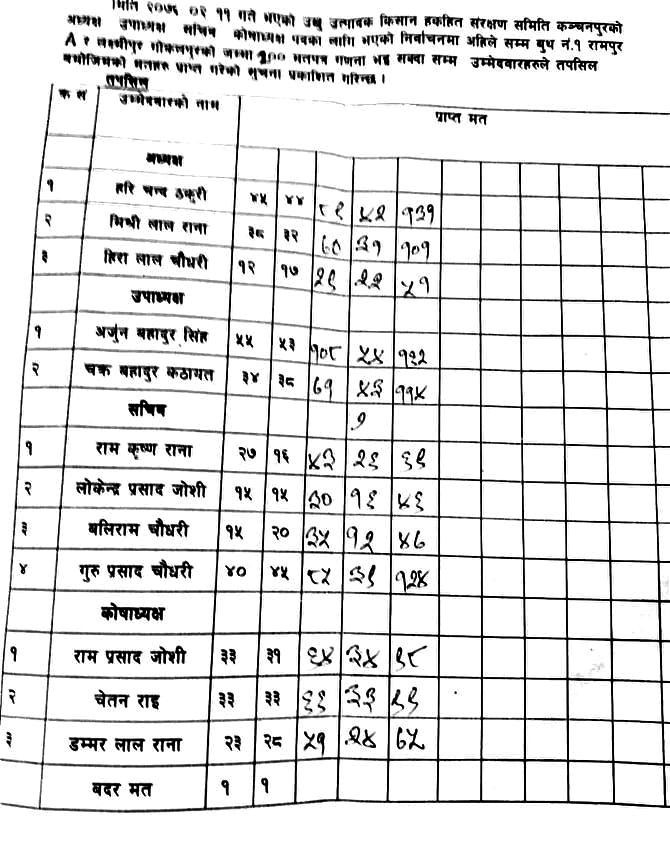 मिति २०७६ ०२ ११ गते भएको उखु उत्पादक किसान हकहित संरक्षण समिति कञ्चनपुरको
अध्यक्ष उपाध्यक्ष सचिव कोषाध्यक्ष पदका लागि भएको निर्वाचनमा अहिले सम्म बुथ नं.१ रामपुर
A र लक्ष्मीपुर गोकुलपुरको जम्मा १०० मतपत्र गणना भइ सक्दा सम्म उम्मेदवारहरुले तपसिल
बमोजिमको मतहरु प्राप्त गरेको सुचना प्रकाशित गरिन्छ ।
तपसिल
क्र सं उम्मेदवारको नाम प्राप्त मत
अध्यक्ष
१ हरि चन्द ठकुरी ४५ ४४ ८९ ४२ १३१
२ मिश्री लाल राना ३८ ३२ ७० ३१ १०१
३ हिरा लाल चौधरी १२ १७ २९ २२ ५१
उपाध्यक्ष
१ अर्जुन बहादुर सिंह ५५ ५३ १०८ ५४ १६२
२ चक्र बहादुर कठायत ३४ ३८ ७१ ४३ ११४
सचिब १
१ राम कृष्ण राना २७ १६ ४३ २६ ६९
२ लोकेन्द्र प्रसाद जोशी १५ १५ ३० १६ ४६
३ बलिराम चौधरी १५ २० ३५ १२ ४७
४ गुरु प्रसाद चौधरी ४० ४५ ८५ ३९ १२४
कोषाध्यक्ष
१ राम प्रसाद जोशी ३३ ३१ ६४ ३४ ९८
२ चेतन राइ ३३ ३३ ६६ ३३ ९९
३ डम्मर लाल राना २३ २८ ५१ २४ ७५
बदर मत १ १